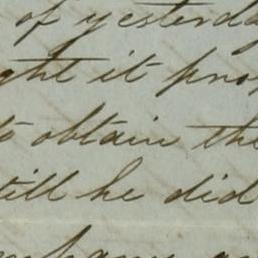 of yesterda
ght it prop
to obtain the
till he did
ompany an